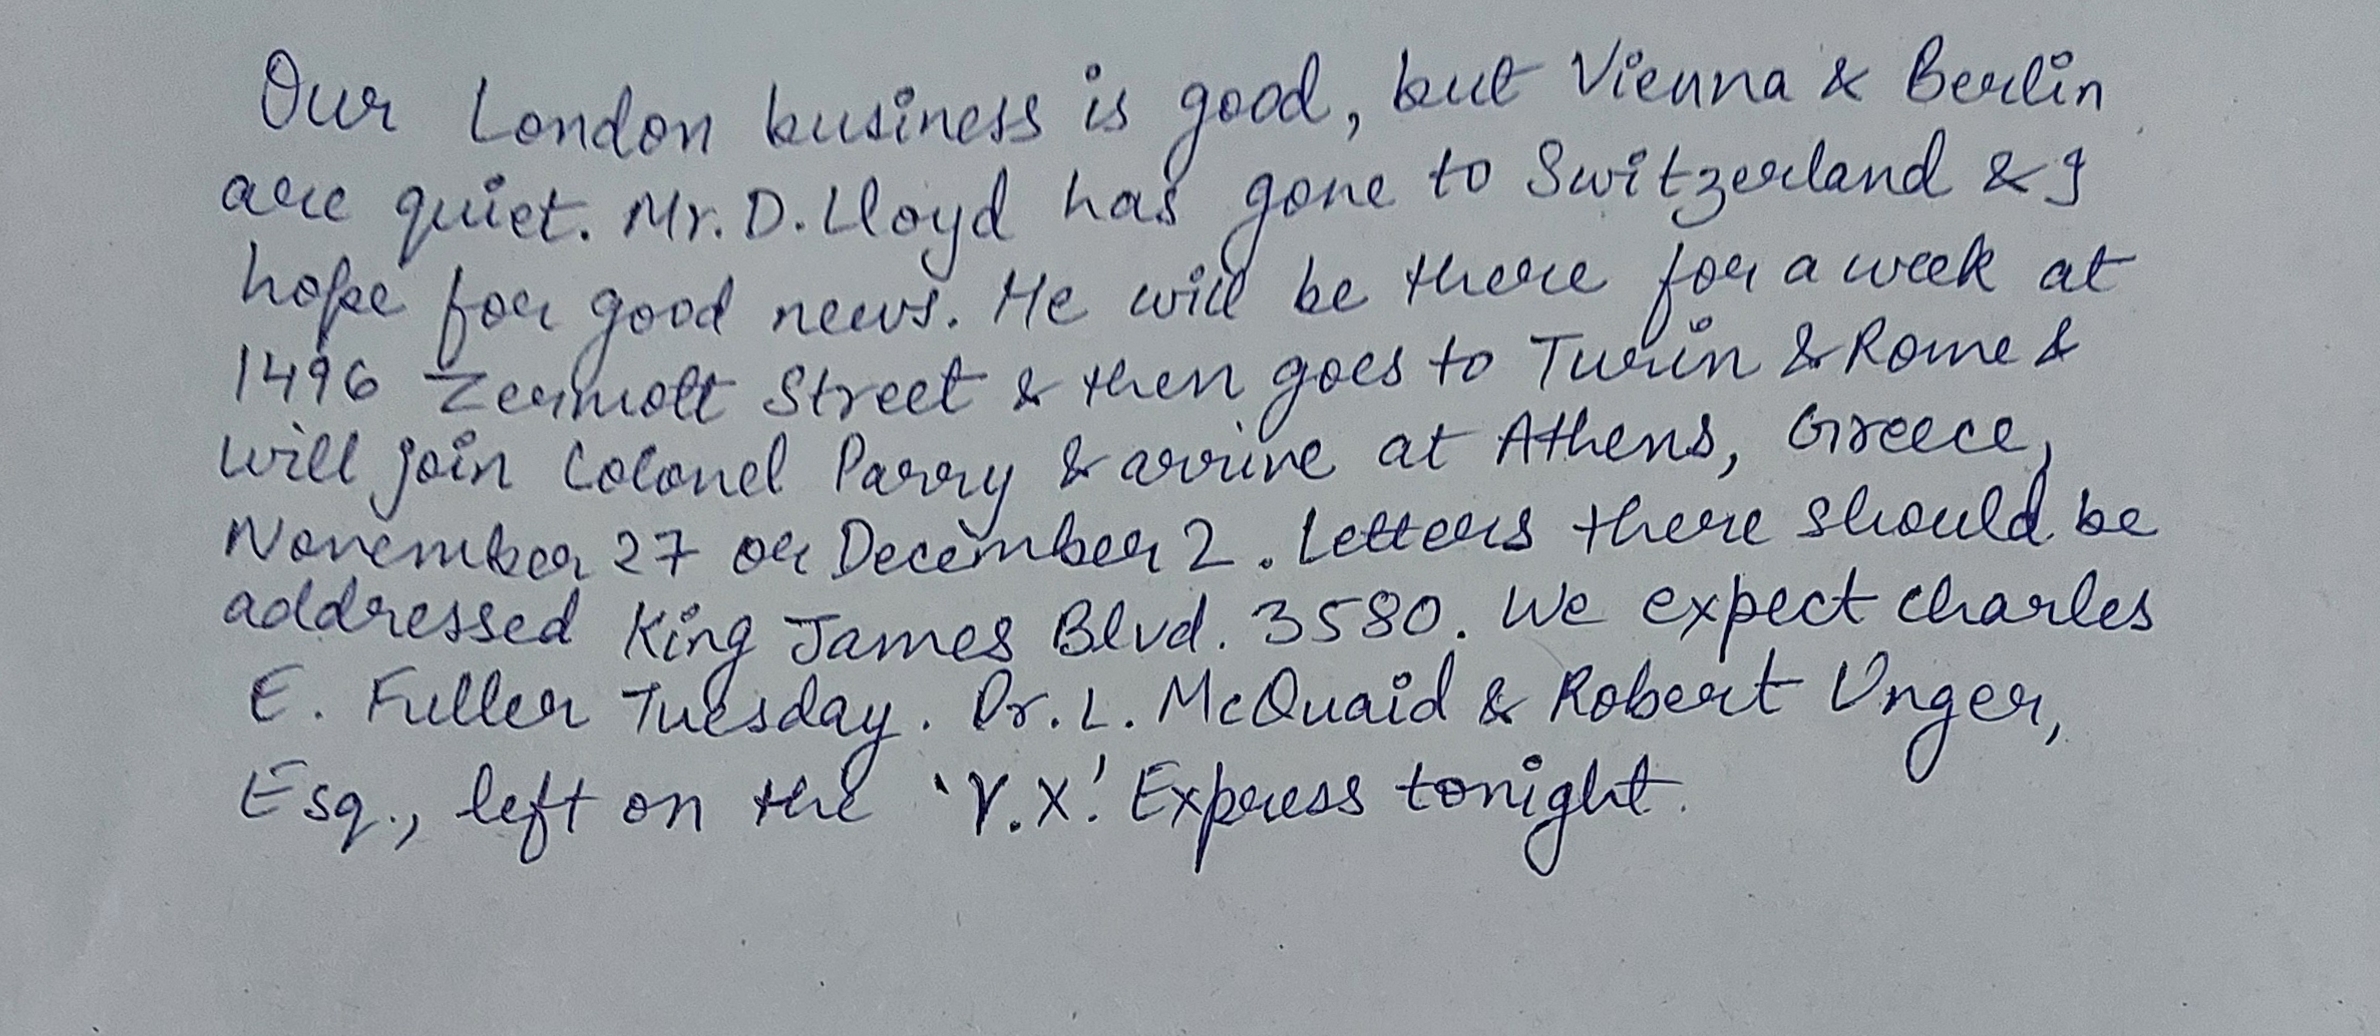 Our London business is good, but Vienna & Berlin
are quiet. Mr. D. Lloyd has gone to Switzerland & I
hope for good news. He will be there for a week at
1496 Zermott Street & then goes to Turin & Rome &
will join Colonel Parry & arrive at Athens, Greece,
November 27 or December 2. Letters there should be
addressed King James Blvd. 3580. We expect Charles
E. Fuller Tuesday. Dr. L. McQuaid & Robert Unger,
Esq., left on the 'Y.X.' Express tonight.